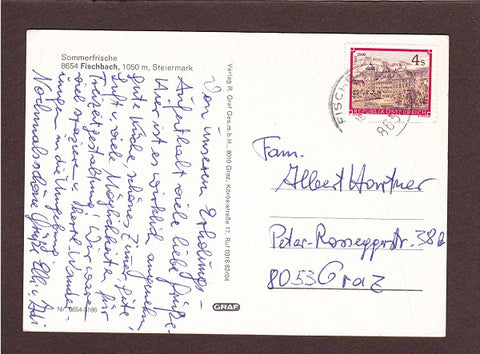 Sommerfrische
8654 Fischbach, 1050 m, Steiermark
Von unserem Erholungs-
Aufenthalt viele liebe Grüße.
Hier ist es wirklich angenehm,
gute Küche, schönes Zimmer, gute
Luft u. viele Möglichkeiten für
Freizeitgestaltung! Wir waren
viel spazieren u.
in die Umgebung
Nochmals schöne Grüße Elli u.
Nr. 8654/5166
Verlag R. Graf Ges.m.b.H., 8010 Graz, Korösistraße 17, Ruf 0316/62404
GRAF
4 S
REPUBLIK ÖSTERREICH
FISCHB
865
Fam.
Albert Hortner
Peter-Roseggerstr. 38a
8053 Graz